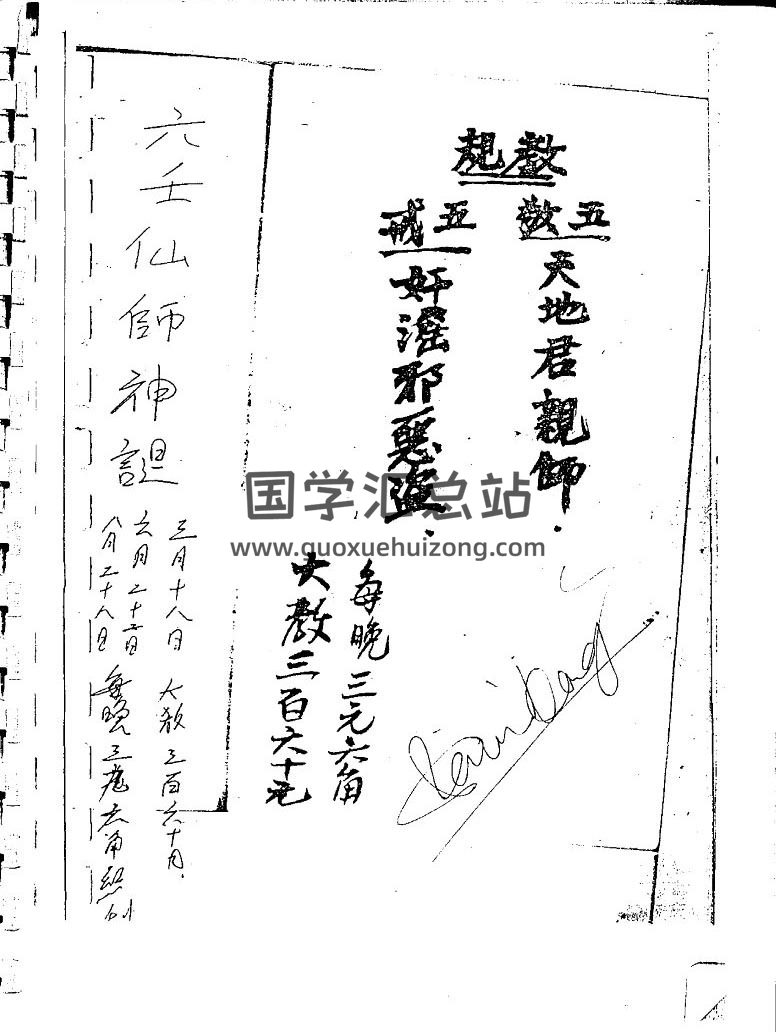 教規
五敬
天地君親師.
五戒
奸滛邪惡盗.
每晚三元六角
大教三百六十元
六壬仙師神誕
三月十八日 大教三百六十
六月二十
八月二十八日 每晚三元六角
国学汇总站
www.guoxuehuizong.com